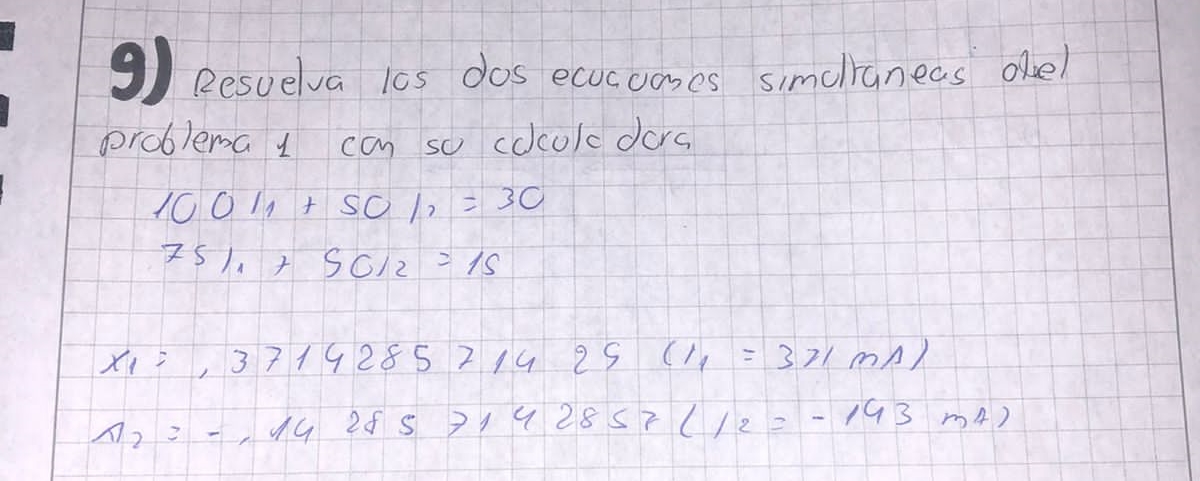 9) Resuelva las dos ecuaciones simultaneas del
problema 1 con su calculadora
100 I1 + 50 I2 = 30
75 I1 + 50 I2 = 15
x1 = , 371428571425 (I1 = 371 mA)
x2 = - , 142857142857 (I2 = - 143 mA)